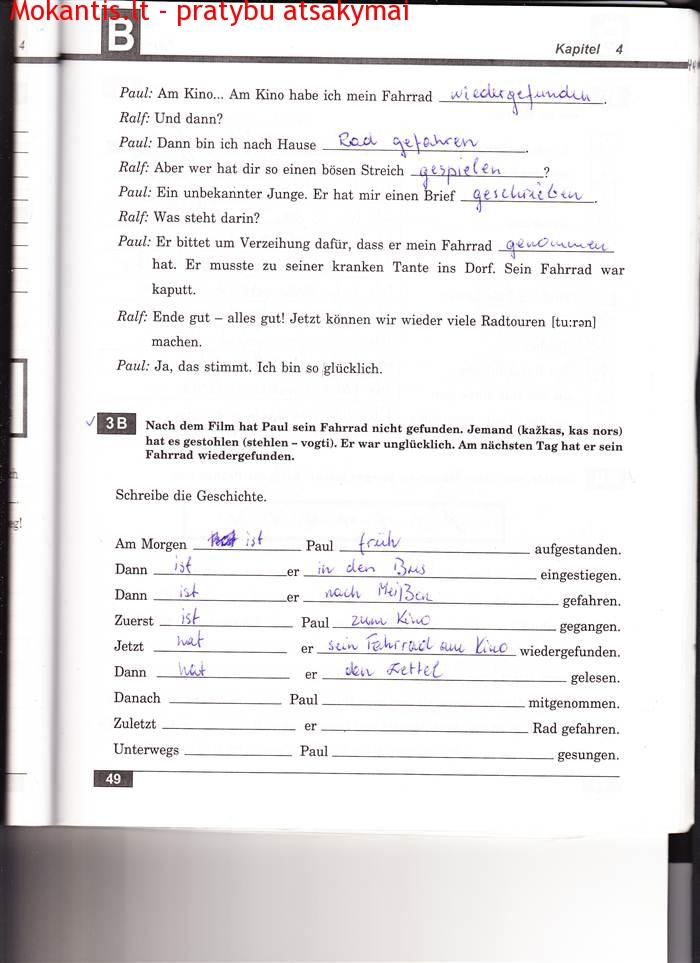 Mokantis.lt - pratybu atsakymai
4
B
Kapitel 4
Paul: Am Kino... Am Kino habe ich mein Fahrrad wiedergefunden.
Ralf: Und dann?
Paul: Dann bin ich nach Hause Rad gefahren.
Ralf: Aber wer hat dir so einen bösen Streich gespielen?
Paul: Ein unbekannter Junge. Er hat mir einen Brief geschrieben.
Ralf: Was steht darin?
Paul: Er bittet um Verzeihung dafür, dass er mein Fahrrad genommen
hat. Er musste zu seiner kranken Tante ins Dorf. Sein Fahrrad war
kaputt.
Ralf: Ende gut – alles gut! Jetzt können wir wieder viele Radtouren [tu:rən]
machen.
Paul: Ja, das stimmt. Ich bin so glücklich.
3B Nach dem Film hat Paul sein Fahrrad nicht gefunden. Jemand (kažkas, kas nors)
hat es gestohlen (stehlen – vogti). Er war unglücklich. Am nächsten Tag hat er sein
Fahrrad wiedergefunden.
Schreibe die Geschichte.
Am Morgen ist Paul früh aufgestanden.
Dann ist er in den Bus eingestiegen.
Dann ist er nach Meißen gefahren.
Zuerst ist Paul zum Kino gegangen.
Jetzt hat er sein Fahrrad am Kino wiedergefunden.
Dann hat er den Zettel gelesen.
Danach ____ Paul ____ mitgenommen.
Zuletzt ____ er ____ Rad gefahren.
Unterwegs ____ Paul ____ gesungen.
49